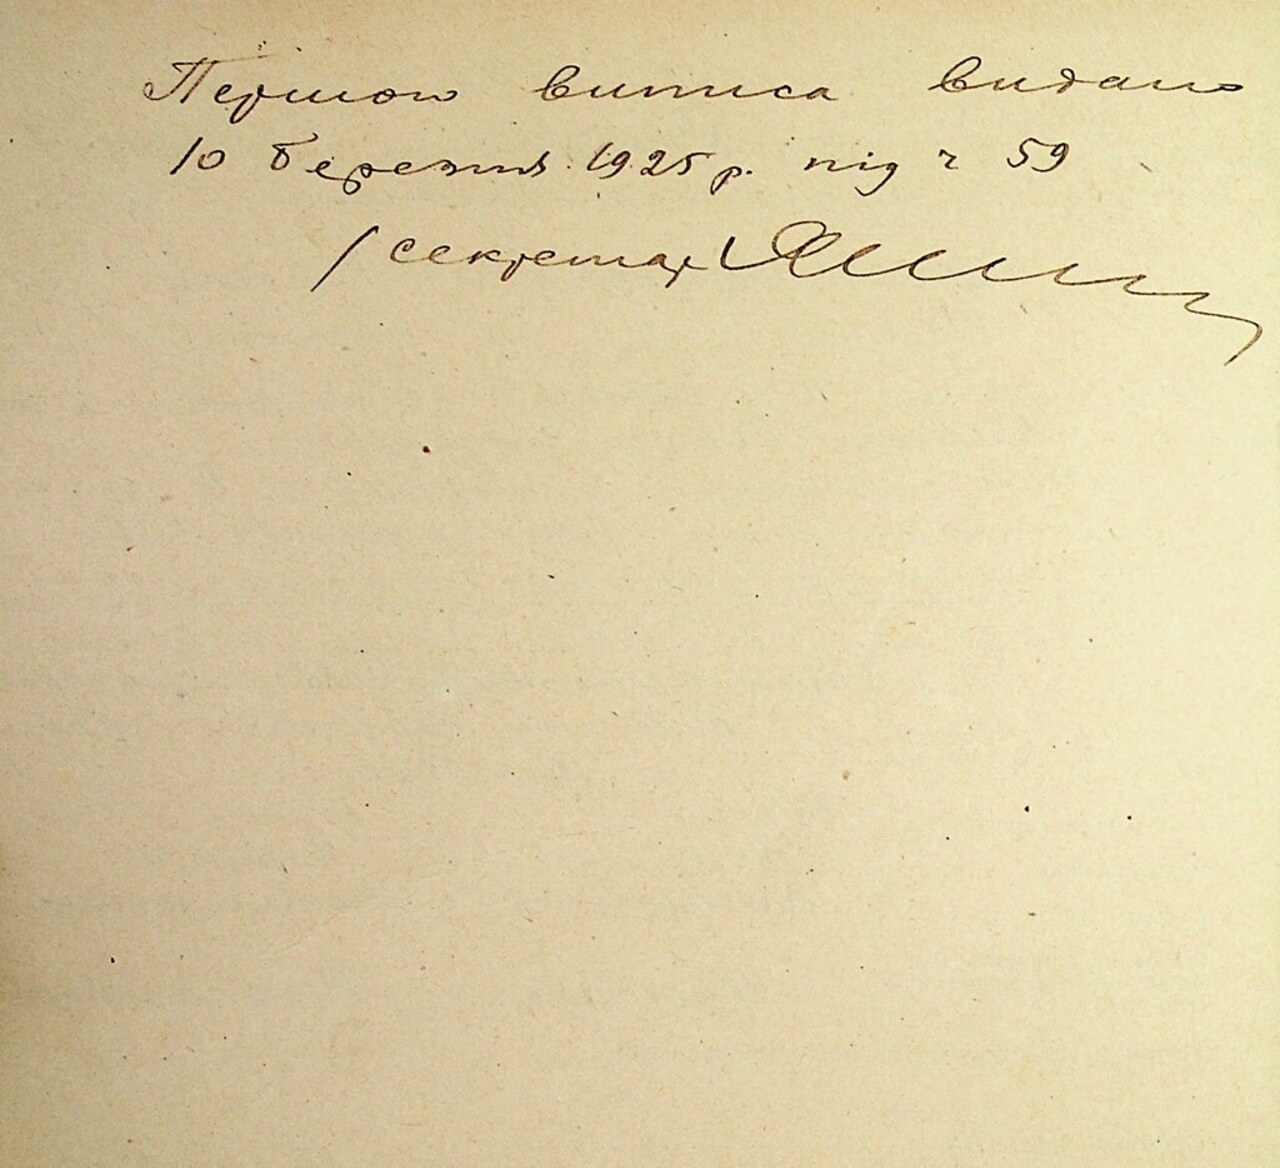 Першою випись видано
10 березня 1925 р. під ч 59
/ секретар